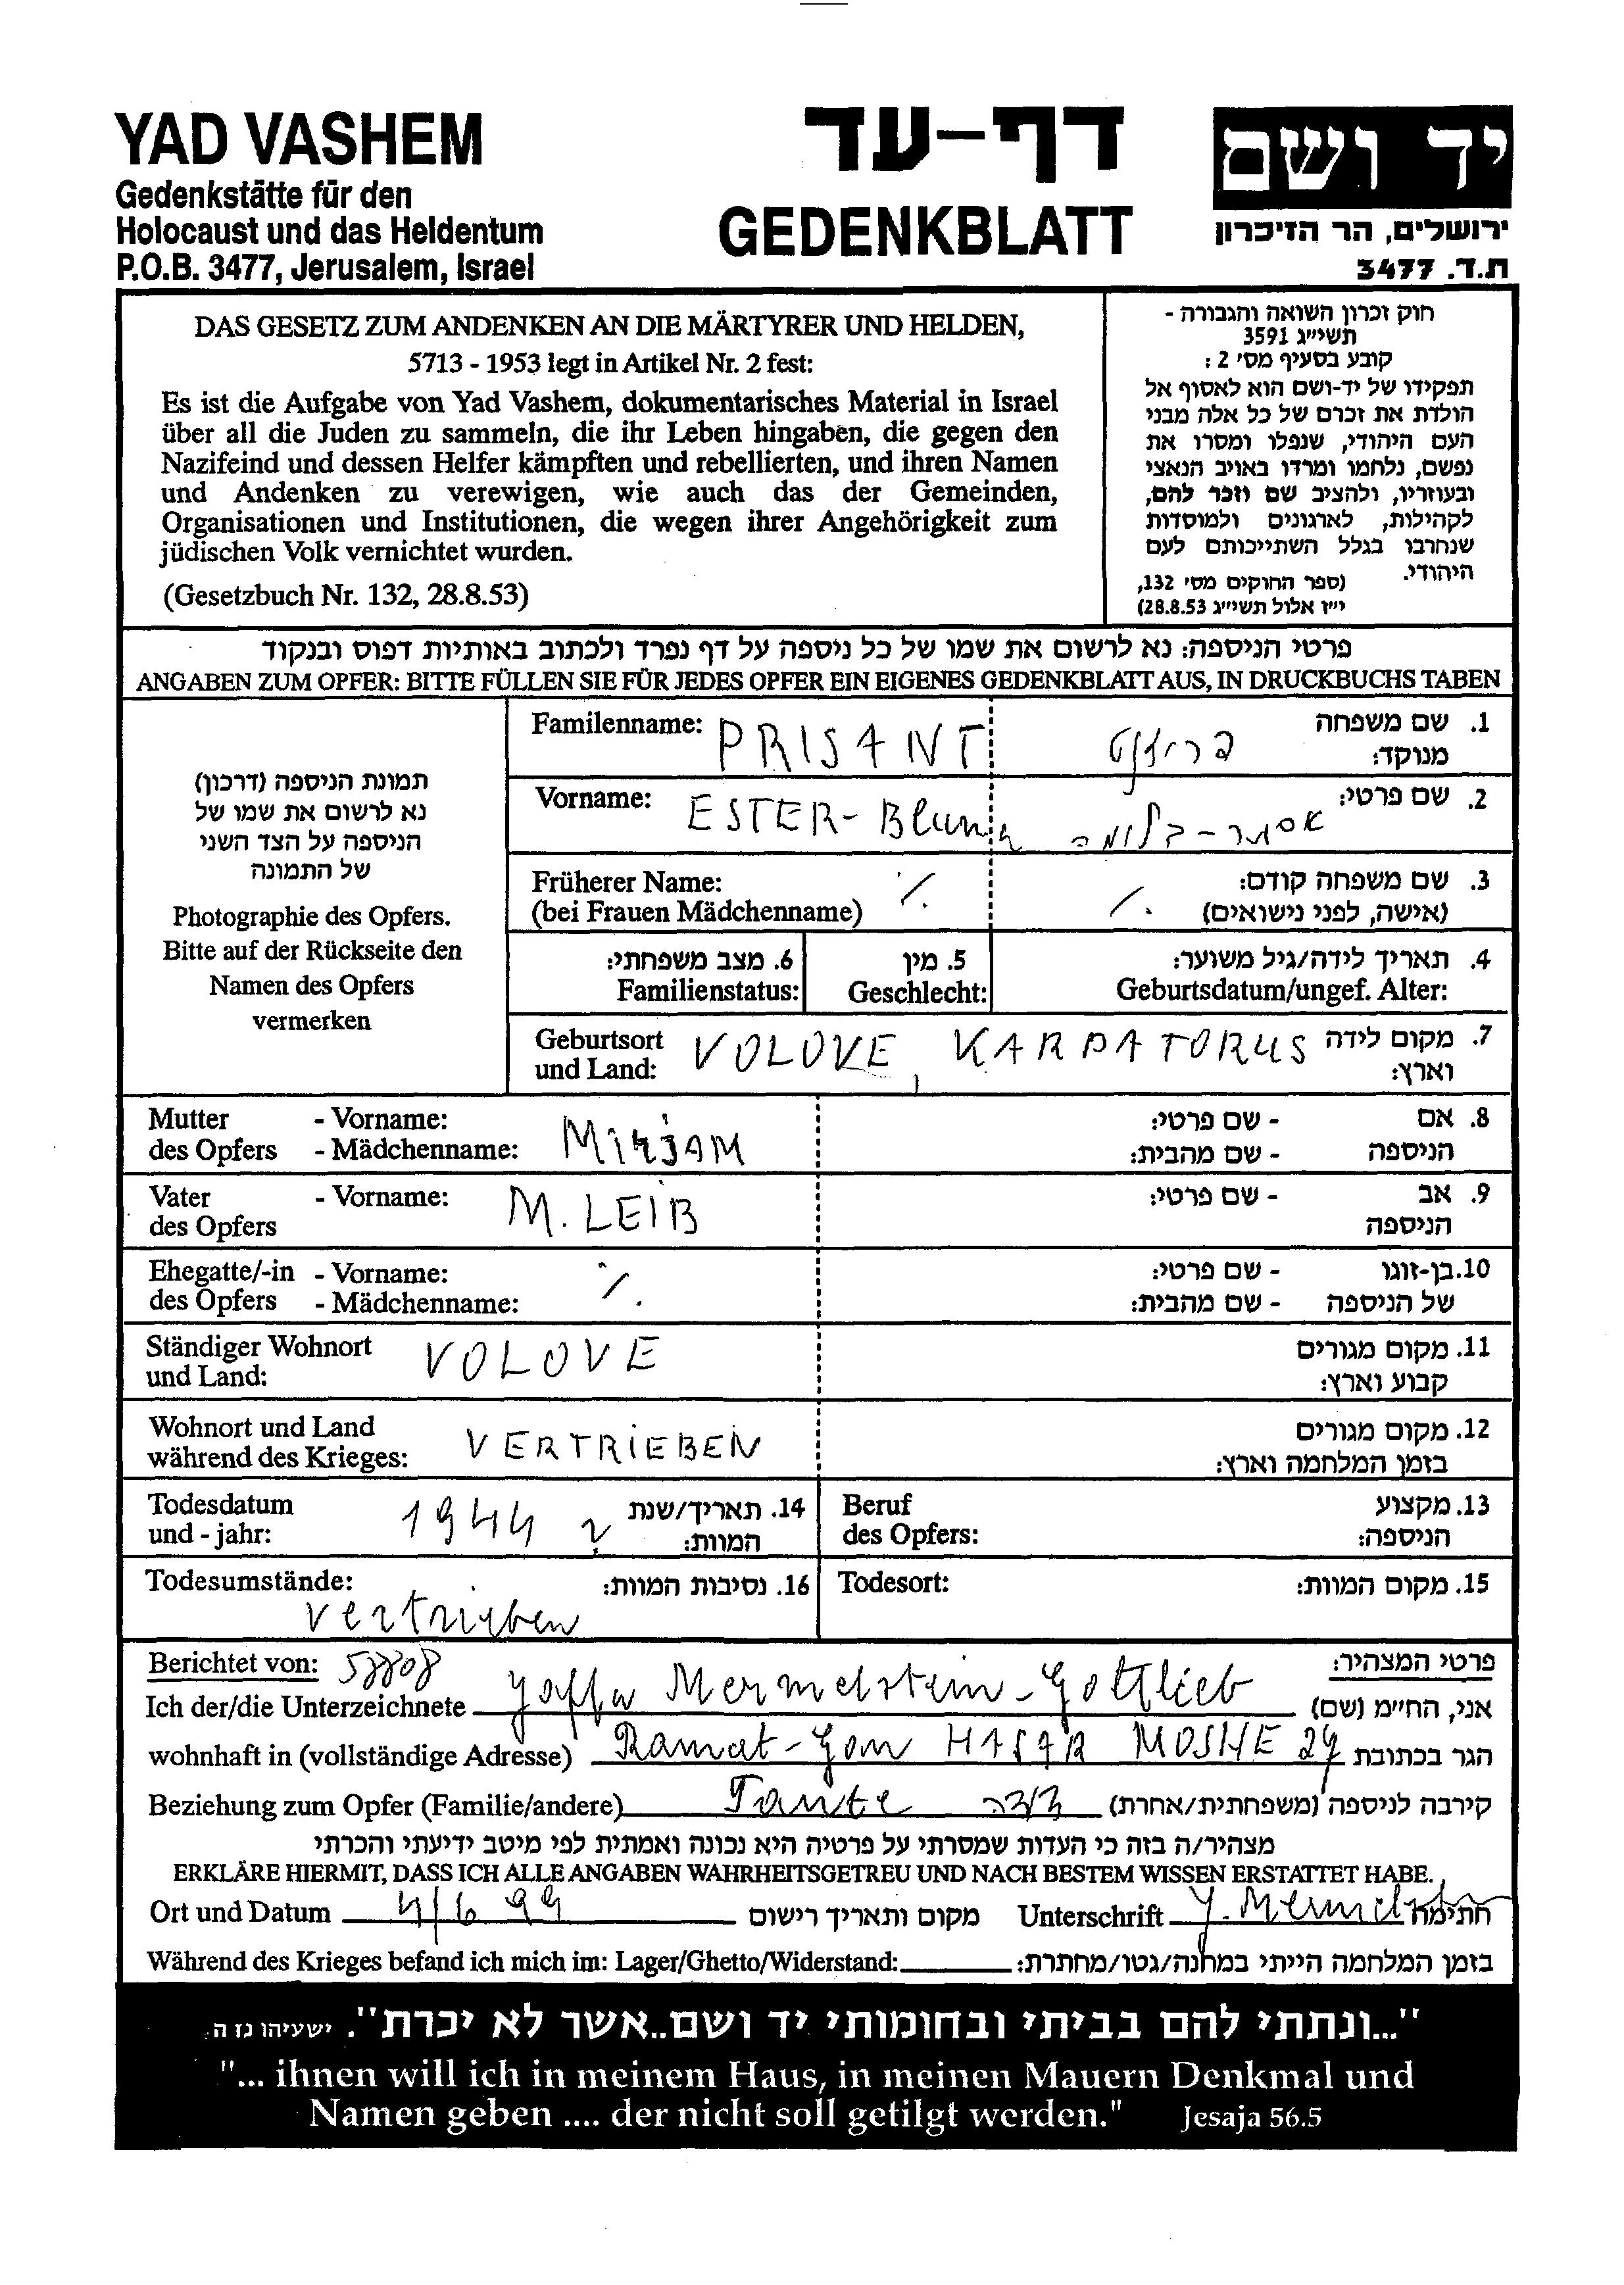 YAD VASHEM
Gedenkstätte für den
Holocaust und das Heldentum
P.O.B. 3477, Jerusalem, Israel
דף-עד
GEDENKBLATT
יד ושם
ירושלים, הר הזיכרון
ת.ד. 3477
DAS GESETZ ZUM ANDENKEN AN DIE MÄRTYRER UND HELDEN,
5713 - 1953 legt in Artikel Nr. 2 fest:
Es ist die Aufgabe von Yad Vashem, dokumentarisches Material in Israel
über all die Juden zu sammeln, die ihr Leben hingaben, die gegen den
Nazifeind und dessen Helfer kämpften und rebellierten, und ihren Namen
und Andenken zu verewigen, wie auch das der Gemeinden,
Organisationen und Institutionen, die wegen ihrer Angehörigkeit zum
jüdischen Volk vernichtet wurden.
(Gesetzbuch Nr. 132, 28.8.53)
חוק זכרון השואה והגבורה -
תשי״ג 3591
קובע בסעיף מס׳ 2 :
תפקידו של יד-ושם הוא לאסוף אל
הולדת את זכרם של כל אלה מבני
העם היהודי, שנפלו ומסרו את
נפשם, נלחמו ומרדו באויב הנאצי
ובעוזריו, ולהציב שם וזכר להם,
לקהילות, לארגונים ולמוסדות
שנחרבו בגלל השתייכותם לעם
היהודי.
(ספר החוקים מס׳ 132,
י״ז אלול תשי״ג 28.8.53)
פרטי הניספה: נא לרשום את שמו של כל ניספה על דף נפרד ולכתוב באותיות דפוס ובנקוד
ANGABEN ZUM OPFER: BITTE FÜLLEN SIE FÜR JEDES OPFER EIN EIGENES GEDENKBLATT AUS, IN DRUCKBUCHS TABEN
תמונת הניספה (דרכון)
נא לרשום את שמו של
הניספה על הצד השני
של התמונה
Photographie des Opfers.
Bitte auf der Rückseite den
Namen des Opfers
vermerken
Familenname: PRISANT
1. שם משפחה
מנוקד:
Vorname: ESTER- Bluma
אסתר - בלומה
2. שם פרטי:
Früherer Name: ./.
(bei Frauen Mädchenname)
./.
3. שם משפחה קודם:
(אישה, לפני נישואים)
6. מצב משפחתי:
Familienstatus:
5. מין
Geschlecht:
4. תאריך לידה/גיל משוער:
Geburtsdatum/ungef. Alter:
Geburtsort
und Land: VOLOVE, KARPATORUS
7. מקום לידה
וארץ:
Mutter - Vorname:
des Opfers - Mädchenname: MirjAM
8. אם - שם פרטי:
הניספה - שם מהבית:
Vater - Vorname: M. LEIB
des Opfers
9. אב - שם פרטי:
הניספה
Ehegatte/-in - Vorname: ./.
des Opfers - Mädchenname:
10. בן-זוגו - שם פרטי:
של הניספה - שם מהבית:
Ständiger Wohnort
und Land: VOLOVE
11. מקום מגורים
קבוע וארץ:
Wohnort und Land
während des Krieges: VERTRIEBEN
12. מקום מגורים
בזמן המלחמה וארץ:
Todesdatum
und - jahr: 1944 ?
14. תאריך/שנת
המוות:
Beruf
des Opfers:
13. מקצוע
הניספה:
Todesumstände:
vertrieben
16. נסיבות המוות:
Todesort:
15. מקום המוות:
Berichtet von: 58808
פרטי המצהיר:
Ich der/die Unterzeichnete Yaffa Mermelstein-Gottlieb אני, החי״מ (שם)
wohnhaft in (vollständige Adresse) Ramat-Gan HASAR MOSHE 24 הגר בכתובת
Beziehung zum Opfer (Familie/andere) Tante דודה קירבה לניספה (משפחתית/אחרת)
מצהיר/ה בזה כי העדות שמסרתי על פרטיה היא נכונה ואמתית לפי מיטב ידיעתי והכרתי
ERKLÄRE HIERMIT, DASS ICH ALLE ANGABEN WAHRHEITSGETREU UND NACH BESTEM WISSEN ERSTATTET HABE.
Ort und Datum 4/6 99 מקום ותאריך רישום Unterschrift Y. Mermelstein חתימה
Während des Krieges befand ich mich im: Lager/Ghetto/Widerstand: בזמן המלחמה הייתי במחנה/גטו/מחתרת:
"...ונתתי להם בביתי ובחומותי יד ושם..אשר לא יכרת". ישעיהו נו ה
"... ihnen will ich in meinem Haus, in meinen Mauern Denkmal und
Namen geben .... der nicht soll getilgt werden." Jesaja 56.5